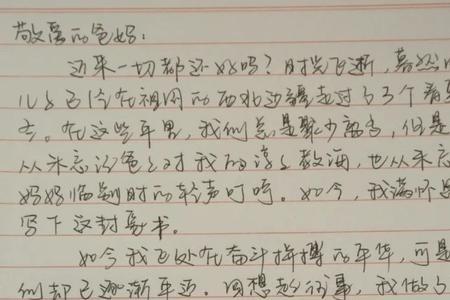 敬爱的爸妈：
近来一切都还好吗？时光飞逝，蓦然
儿女已经在祖国的西北边疆走过了3个春
冬。在这些年里，我们总是聚少离多，但是
从未忘记爸爸对我的谆谆教诲，也从未忘
妈妈临别时的轻声叮咛。如今，我满怀
写下这封家书。
如今我正处在奋斗拼搏的年华，可是
们却已逐渐年迈。回想起往事，我做了